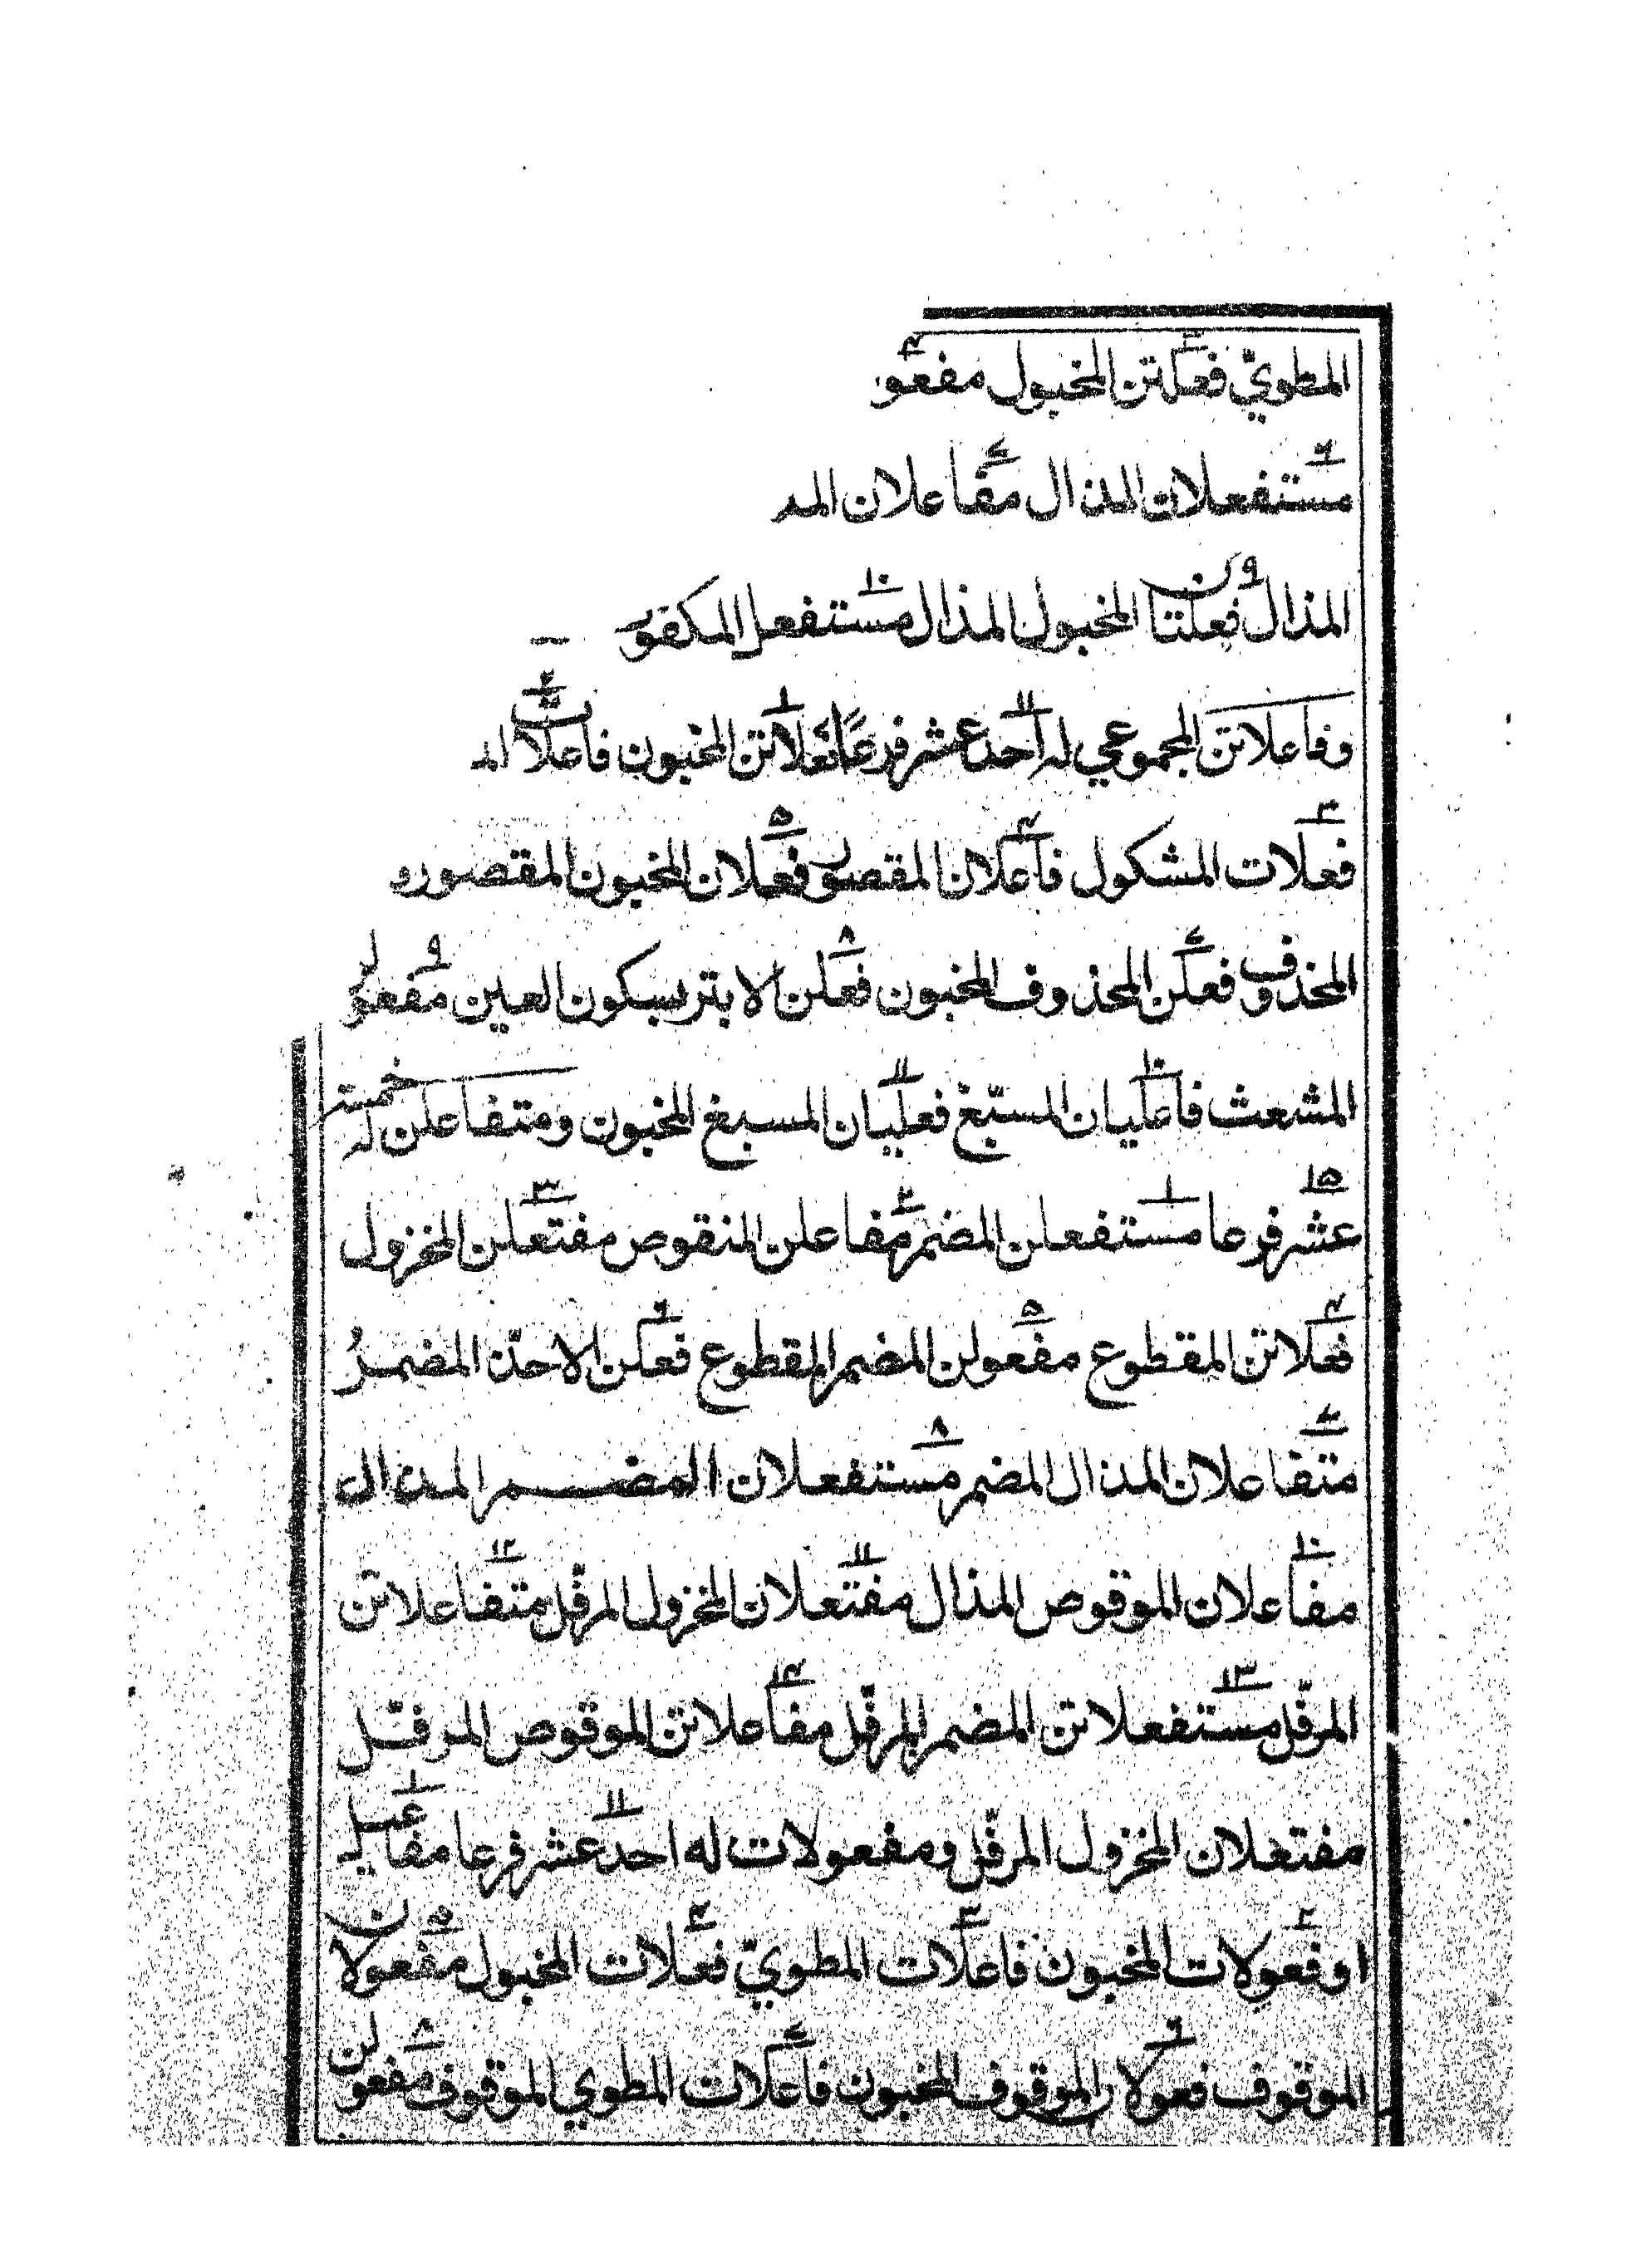 المطويّ فعلتن المخبول مفعو
مستفعلان المذال مفاعلان المذ
المذال فعلتان المخبول المذال مستفعل المكفو
وفاعلاتن المجموعي له احد عشر فرعًا فعلاتن المخبون فاعلات الم
فعلات المشكول فاعلان المقصور فعلان المخبون المقصور و
المحذوف فعلن المحذوف المخبون فعلن الابتر بسكون العين مفعولن
المشعث فاعليان المسبّغ فعليان المسبغ المخبون ومتفاعلن له خمسة
عشر فرعا مستفعلن المضمر مفاعلن المنقوص مفتعلن المخزول
فعلاتن المقطوع مفعولن المضمر المقطوع فعلن الاحذّ المضمر
متفاعلان المذال المضمر مستفعلان المضمر المذال
مفاعلان الموقوص المذال مفتعلان المخزول المرفّل متفاعلاتن
المرفّل مستفعلاتن المضمر المرفّل مفاعلاتن الموقوص المرفّل
مفتعلان المخزول المرفّل ومفعولات له احد عشر فرعا مفاعيل
او فعولات المخبون فاعلات المطويّ فعلات المخبول مفعولان
الموقوف فعولان الموقوف المخبون فاعلات المطوي الموقوف مفعولن